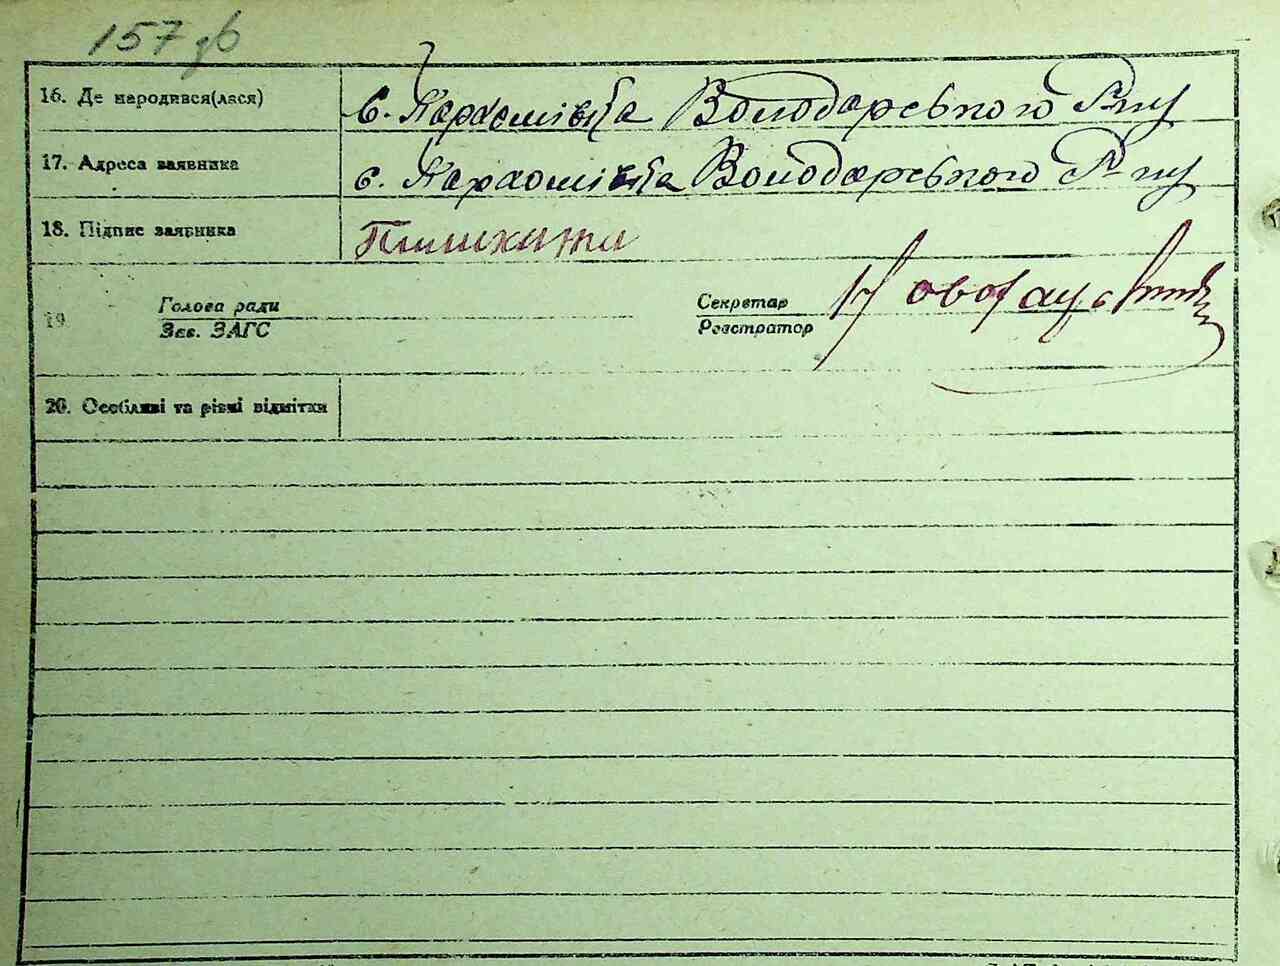 157 зв
16. Де народився(лася) с. Пархомівка Володарського Р-ну
17. Адреса заявника с. Пархомівка Володарського Р-ну
18. Підпис заявника
19. Голова ради Секретар
Зав. ЗАГС Реєстратор
20. Особливі та різні відмітки